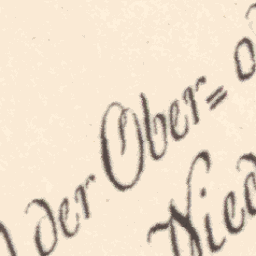 der Ober=
Nied